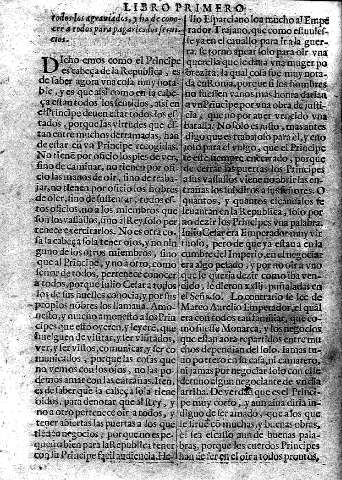 LIBRO PRIMERO
todos los agraviados, y ha de cono
cer a todos para pagar los servi-
cios.
DIcho emos como el Principe
es cabeça de la Republica, es
de saber agora vna cosa muy nota-
ble, y es que assi como en la cabe
ça estan todos los sentidos, assi en
el Principe deuen estar todos los es-
tados, porque las virtudes que es-
tan entre muchos derramadas, han
de estar en vn Principe recogidas.
No tiene por oficio los pies de ver,
sino de caminar, no tienen por ofi
cio las manos de oir, sino de traba-
jar, no tienen por oficio los hombros
de oler, sino de sustentar: todos es-
tos oficios, no a los miembros que
son los vassallos, mas al Rey solo per
tenece exercitarlos. No es otra co-
sa la cabeça sola tener ojos, y no nin
guno de los otros miembros, sino
que al Principe, y no a otro, como
señor de todos, pertenece conocer
a todos, porque Iulio Cesar a todos
los de su huelte conocia, y por sus
propios nombres los llamaua. Amo-
nesto, y mucho amonesto a los Prin
cipes que esto oyeren, y leyere, que
huelguen de visitar, y ser visitados,
ver, y ser vistos, comunicar, y ser co
municados, porque las cosas que
no vemos con los ojos, no las po-
demos amar con las entrañas. Iten,
es de saber que la cabeça sola tiene
oidos, para denotar que al Rey, y
no a otro pertenece oir a todos, y
tener abiertas las puertas a los que
tienen negocios: porque no es pe-
queño bien para la Republica tener
con su Principe facil audiencia. He
lio Esparciano loa mucho al Empe
rador Trajano, que como estuuies-
se ya en el cauallo para ir a la guer-
ra, se torno apear solo para oir vna
querella que le daua vna muger po
brezita: la qual cosa fue muy nota-
da en Roma, porque si los hombres
no fuessen vanos, mas honra darian
a vn Principe por vna obra de justi-
cia, que no por auer vencido vna
batalla. No solo es malo, mas antes
digo que es trabajo para el, y eno-
jo para el vulgo, que el Principe
se este siempre encerrado, porque
de cerrar las puertas los Principes
a sus vassallos viene no abrir las en-
trañas los subditos a sus señores. O
quantos, y quantos escandalos se
leuantaron en la Republica, solo por
no dezir los Principes vna palabra.
Iulio Cesar era Emperador muy vir
tuoso, pero de que ya estaua en la
cumbre del Imperio, en el negociar
era algo pesado, y por no oir a vno
que le queria dezir como iba ven-
dido, le dieron xxiij. puñaladas en
el Senado. Lo contrario se lee de
Marco Aurelio Emperador, el qual
era con todos tan familiar, que co-
mo fuesse Monarca, y los negocios
que estan aora repartidos entre mu
chos dependian del solo. Iamas tu-
uo portero a su casa, ni camarero,
ni jamas por negociar solo con el le
detuuo algun negociante de vn dia
arriba. De verdad que es el Princi-
pe muy corto, y aun auria diria in-
digno de ser amado, que a los que
le siruen muchas, y buenas obras,
les sea escasso aun de buenas pala-
bras, porque los cuerdos Principes
han de ser en el oir a todos promtos,